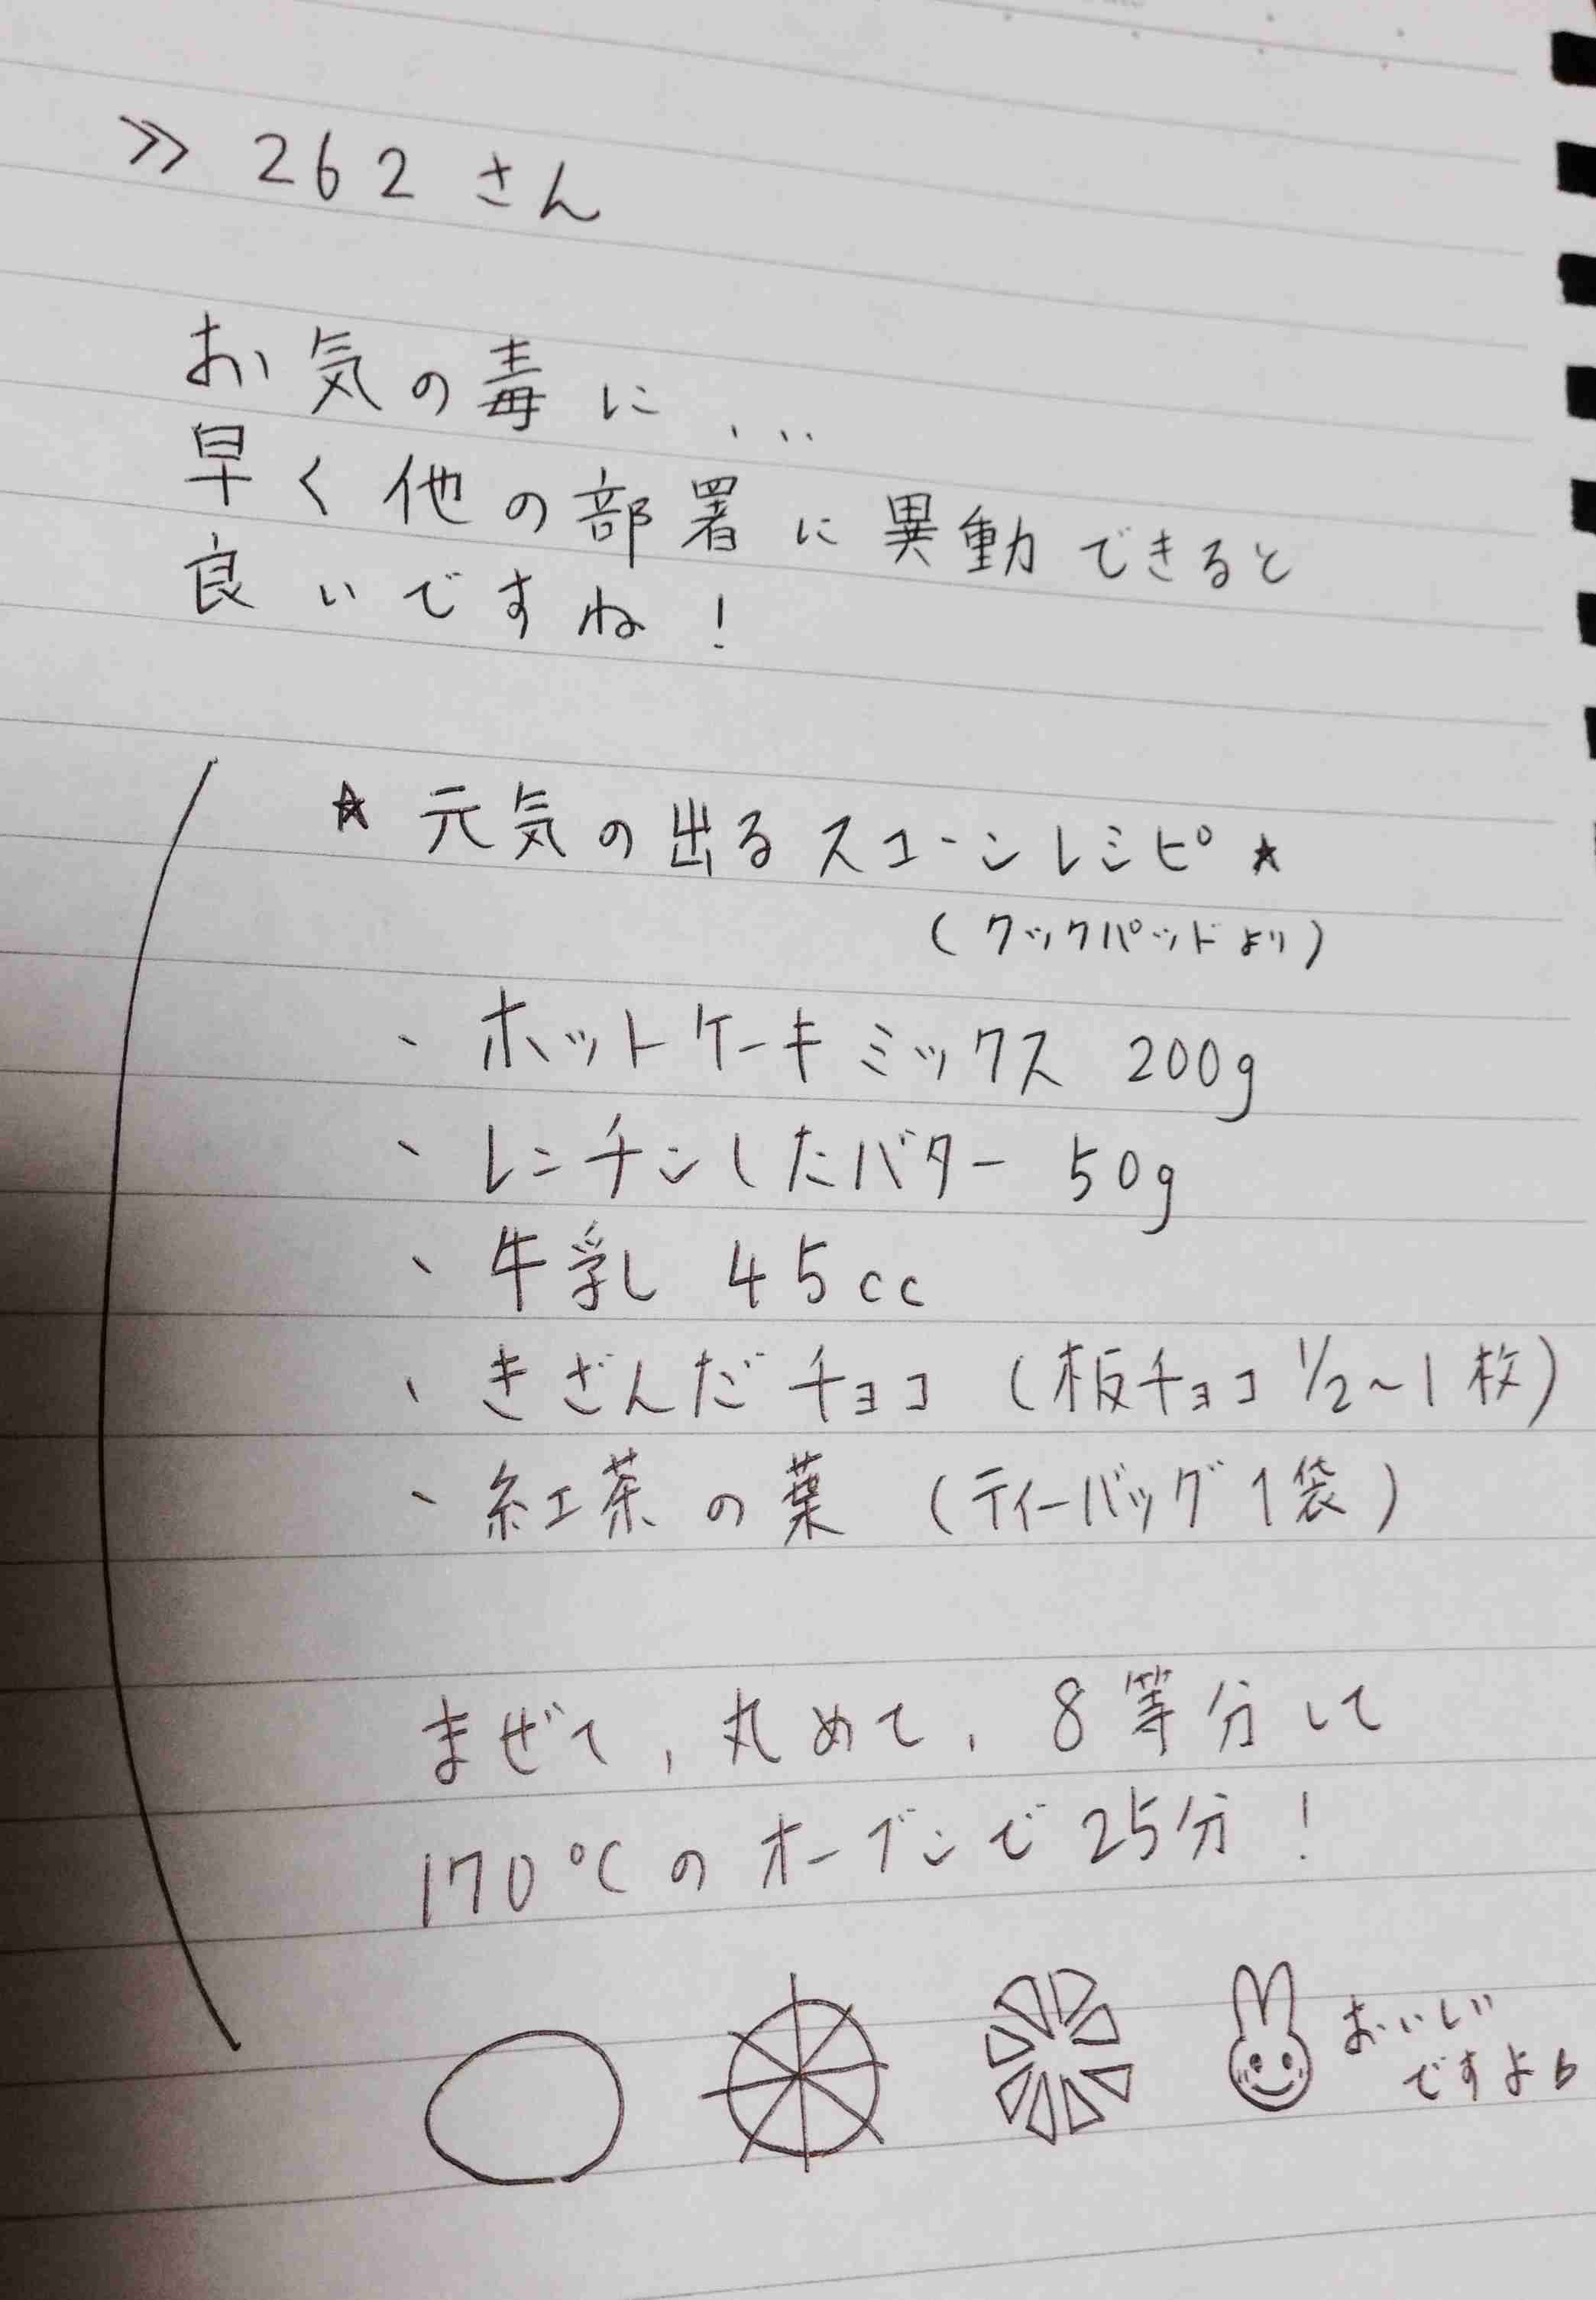 ≫ 262 さん
お気の毒に...
早く他の部署に異動できると
良いですね！
★ 元気の出るスコーンレシピ ★
（クックパッドより）
・ホットケーキミックス 200g
・レンチンしたバター 50g
・牛乳 45cc
・きざんだチョコ（板チョコ 1/2〜1枚）
・紅茶の葉（ティーバッグ1袋）
まぜて、丸めて、8等分して
170℃のオーブンで25分！
おいしい
ですよ♭